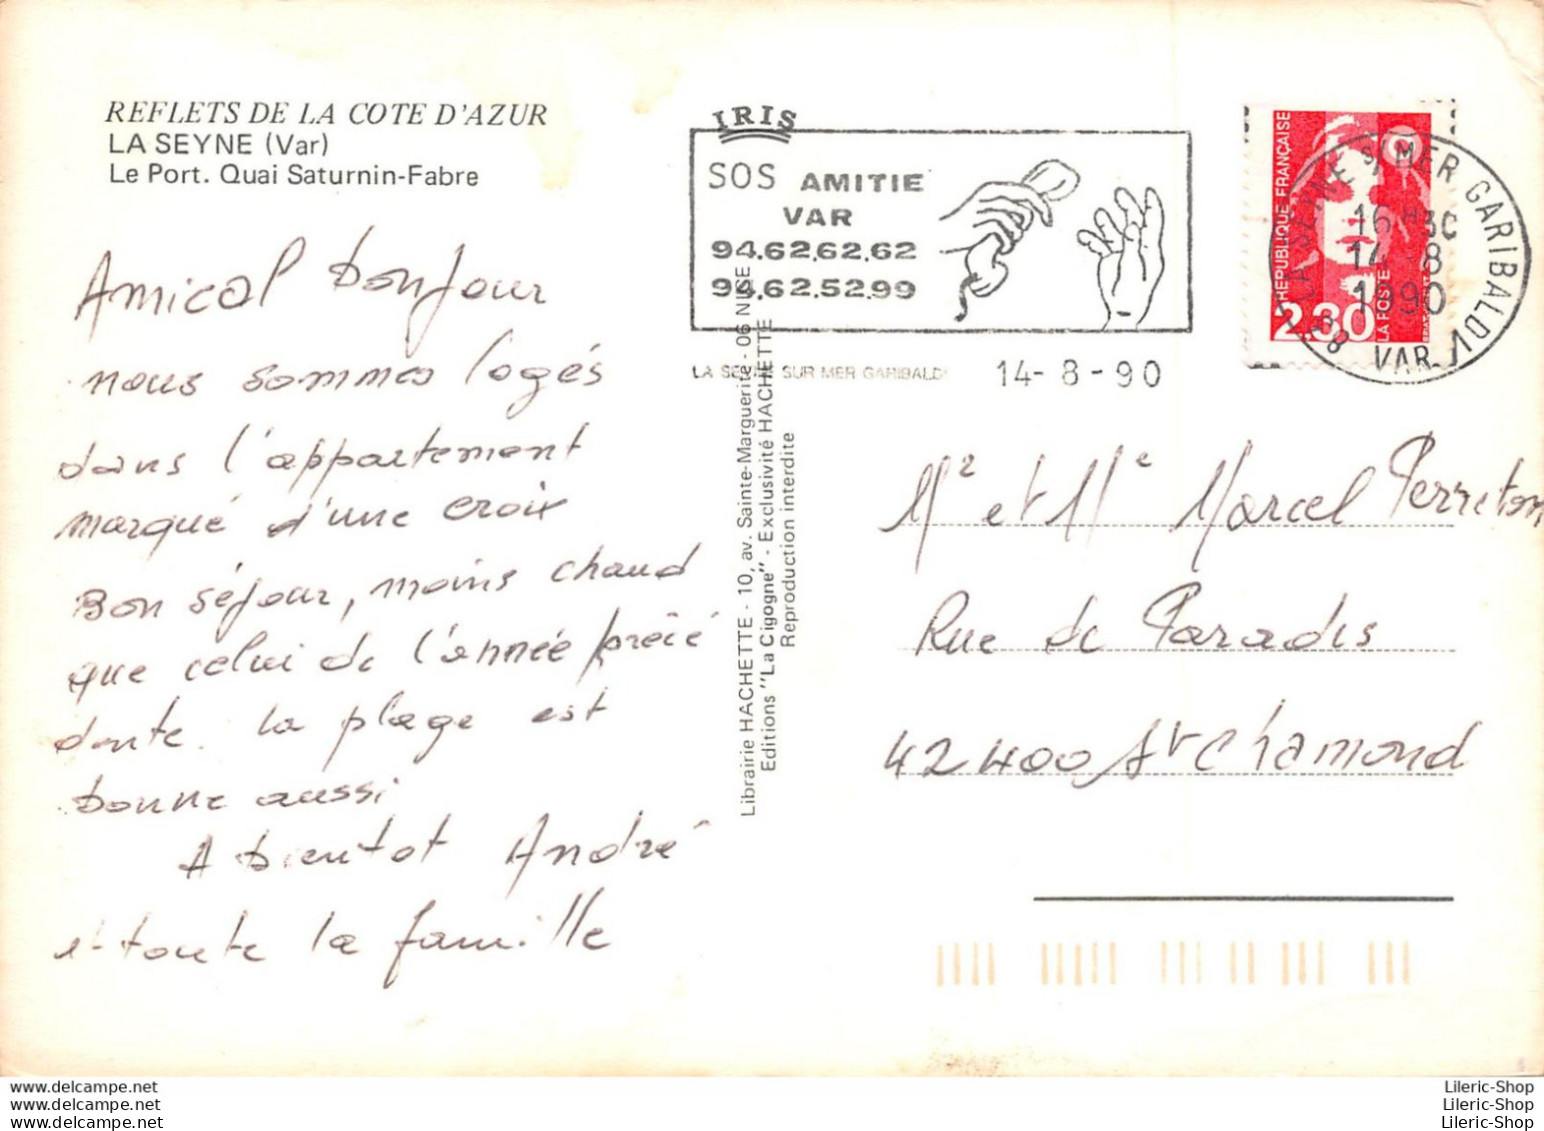 REFLETS DE LA COTE D'AZUR
LA SEYNE (Var)
Le Port. Quai Saturnin-Fabre
Amical bonjour
nous sommes logés
dans l'appartement
marqué d'une croix
Bon séjour, moins chaud
que celui de l'année précé
dente. la plage est
bonne aussi
A bientot André
et toute la famille
Librairie HACHETTE - 10, av. Sainte-Marguerite - 06 NICE
Editions "La Cigogne" - Exclusivité HACHETTE
Reproduction interdite
IRIS
SOS AMITIE
VAR
94.62.62.62
94.62.52.99
LA SEYNE SUR MER GARIBALDI
14-8-90
REPUBLIQUE FRANÇAISE
2,30
LA POSTE
LA SEYNE S/ MER GARIBALDI
16 H 30
14-8
1990
83 VAR
Mr et Me Marcel Perreton
Rue de Paradis
42400 St Chamond
www.delcampe.net
www.delcampe.net
www.delcampe.net
Lileric-Shop
Lileric-Shop
Lileric-Shop